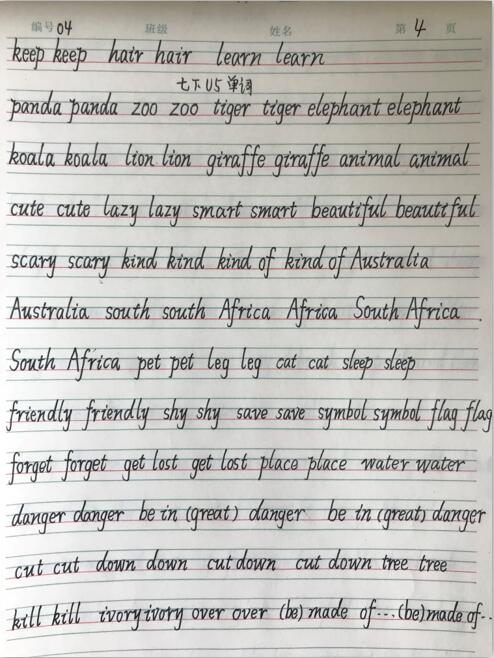 编号 04 班级 姓名 第 4 页
keep keep hair hair learn learn
七下U5单词
panda panda zoo zoo tiger tiger elephant elephant
koala koala lion lion giraffe giraffe animal animal
cute cute lazy lazy smart smart beautiful beautiful
scary scary kind kind kind of kind of Australia
Australia south south Africa Africa South Africa .
South Africa pet pet leg leg cat cat sleep sleep
friendly friendly shy shy save save symbol symbol flag flag
forget forget get lost get lost place place water water
danger danger be in (great) danger be in (great) danger
cut cut down down cut down cut down tree tree
kill kill ivory ivory over over (be) made of... (be) made of...